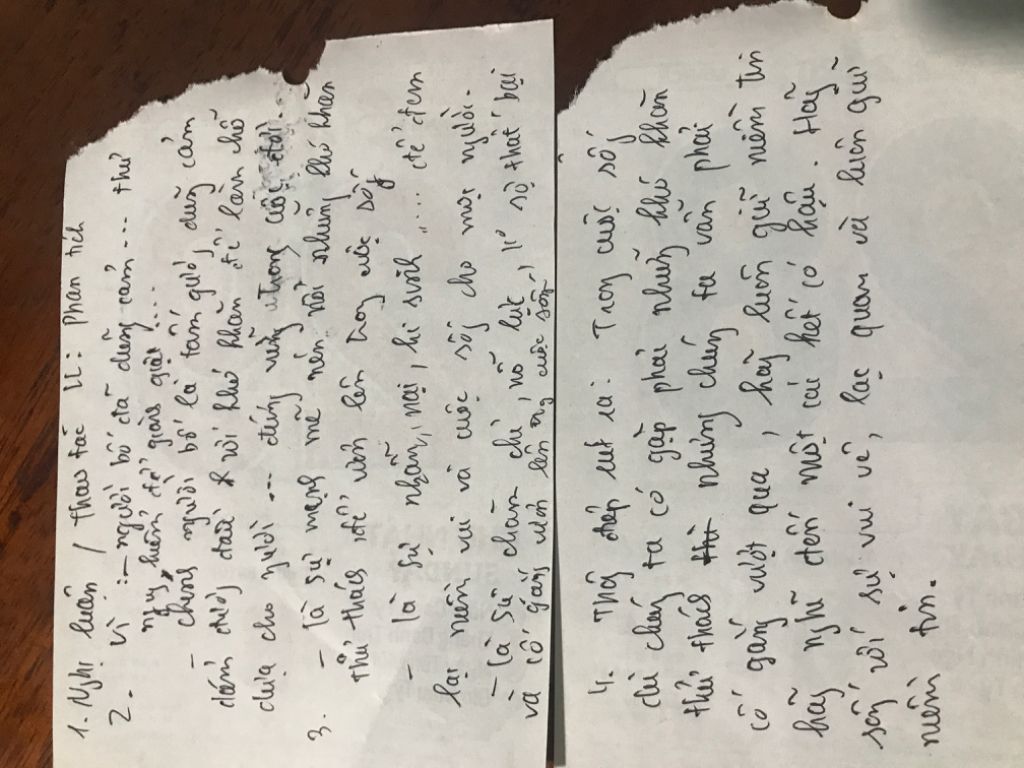 1. Nghị luận / Thao tác LL: Phân tích
2. Vì: - người bố đã dũng cảm... thử
nguy hiểm để giằng giật...
- chứng người bố là tấm gương dũng cảm
dám đương đầu với khó khăn để làm chỗ
dựa cho người... đứng vững trong cuộc đời.
3. - là sự mạnh mẽ nén nỗi những khó khăn
thử thách để vươn lên trong cuộc sống
- là sự nhẫn nại, hi sinh, ... để đem
lại niềm vui và cuộc sống cho mọi người.
- là sự chăm chỉ, nỗ lực, ko sợ thất bại
và cố gắng vươn lên trong cuộc sống,
4. Thông điệp rút ra: Trong cuộc sống
dù chúng ta có gặp phải những khó khăn
thử thách nhưng chúng ta vẫn phải
cố gắng vượt qua, hãy luôn giữ niềm tin
hãy nghĩ đến một cái kết có hậu. Hãy
sống với sự vui vẻ, lạc quan và luôn giữ
niềm tin.